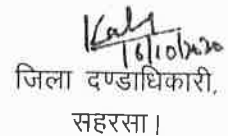 16/10/2020
जिला दण्डाधिकारी,
सहरसा।